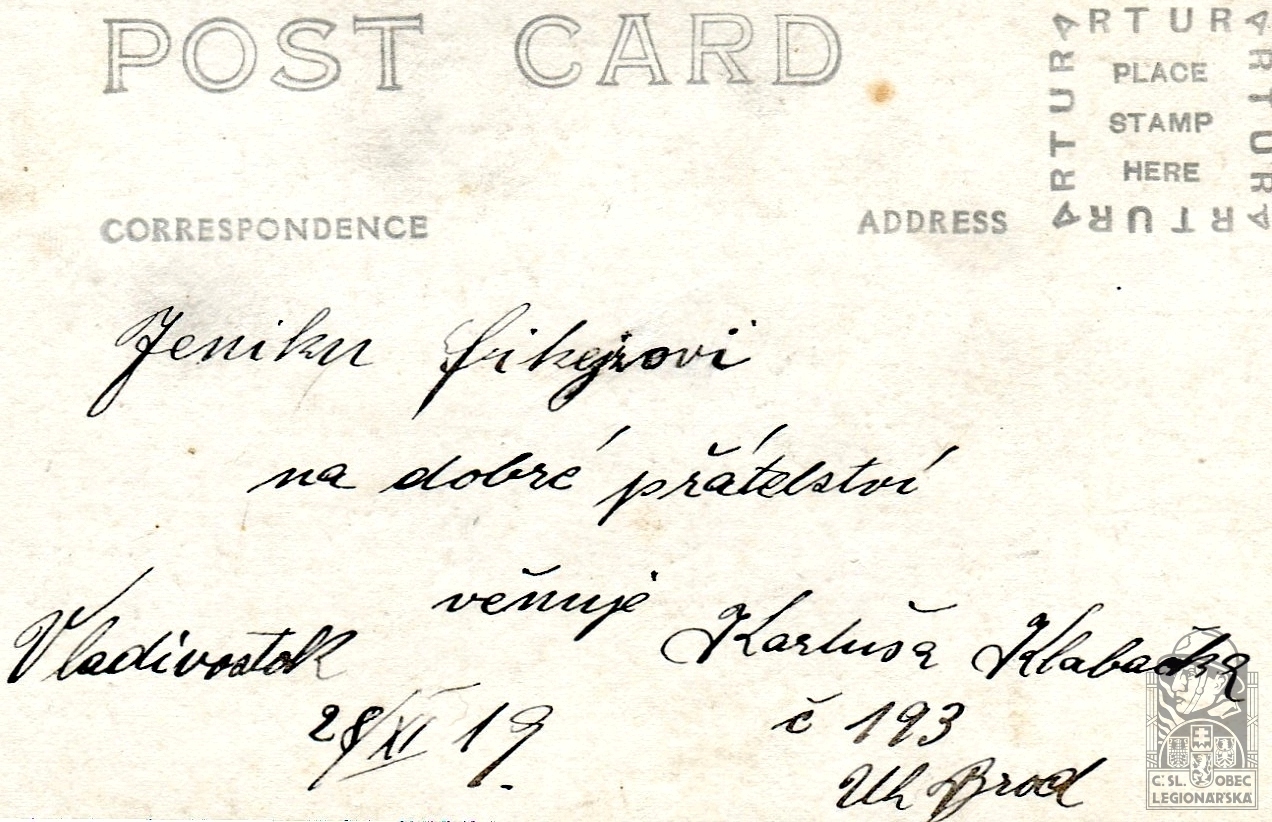 POST CARD
ARTURA
ARTURA
ARTURA
ARTURA
PLACE
STAMP
HERE
CORRESPONDENCE
ADDRESS
Jeniku Fikejzovi
na dobré přátelství
věnuje
Vladivostok
Karluša Klabačka
28/XI 19.
č 193
Uh Brod
Č.SL. OBEC
LEGIONÁŘSKÁ